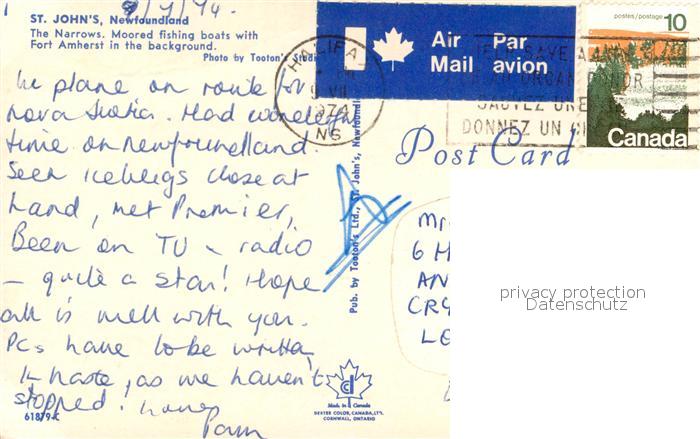 9/7/74.
ST. JOHN'S, Newfoundland
The Narrows. Moored fishing boats with
Fort Amherst in the background.
Photo by Tooton's Studi
In plane on route for
Nova Scotia. Had wonderful
time on Newfoundland.
Seen icebergs close at
hand, met Premier,
Been on TV & radio
– quite a star! Hope
all is well with you.
PCs have to be written
in haste, as we haven't
stopped! Love
Pam
61879-C
Made in Canada
DEXTER COLOR, CANADA, LTD.
CORNWALL, ONTARIO
Pub. by Tooton's Ltd., St. John's, Newfoundland
HALIFA
VII
1974
NS
Air Mail
Par avion
HELP SAVE A
ORGAN
SAUVEZ UNE
DONNEZ UN
postes/postage 10
Canada
Post Card
6 H
AN
CRY
LO
privacy protection
Datenschutz